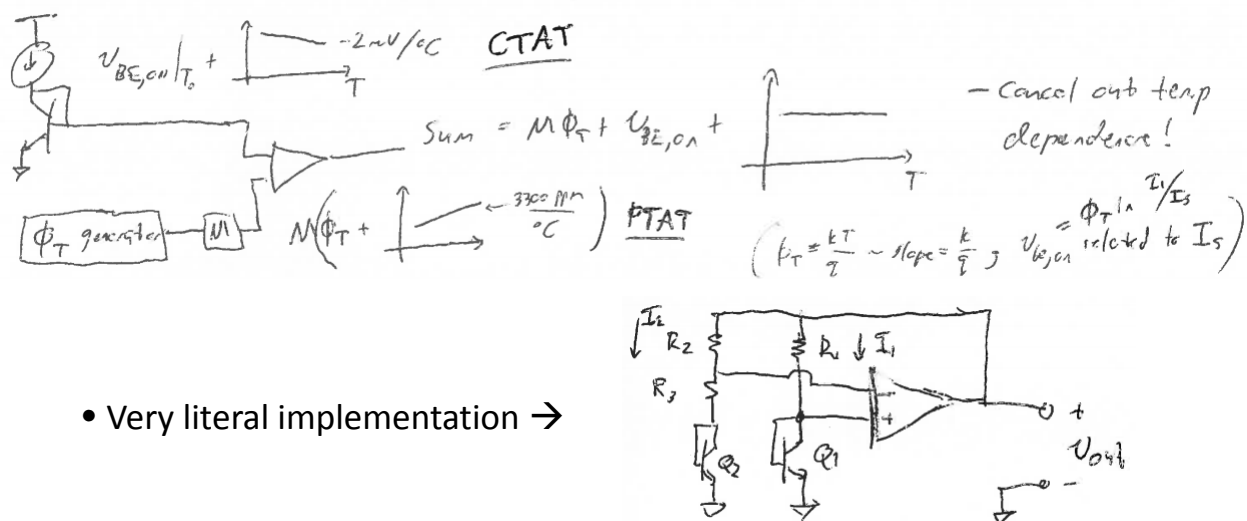 υ_BE,on|T₀ +
-2mV/°C
CTAT
T
Sum = MΦ_T + υ_BE,on +
T
- Cancel out temp
dependence!
Φ_T generator
M
M(Φ_T +
3300 ppm/°C
)
PTAT
(Φ_T = kT/q ~ slope = k/q ; υ_be,on = Φ_T ln I₁/I_S
related to I_S)
I₂
R₂
R₁
I₁
R₃
-
+
Q₂
Q₁
+
υ_out
-
• Very literal implementation →